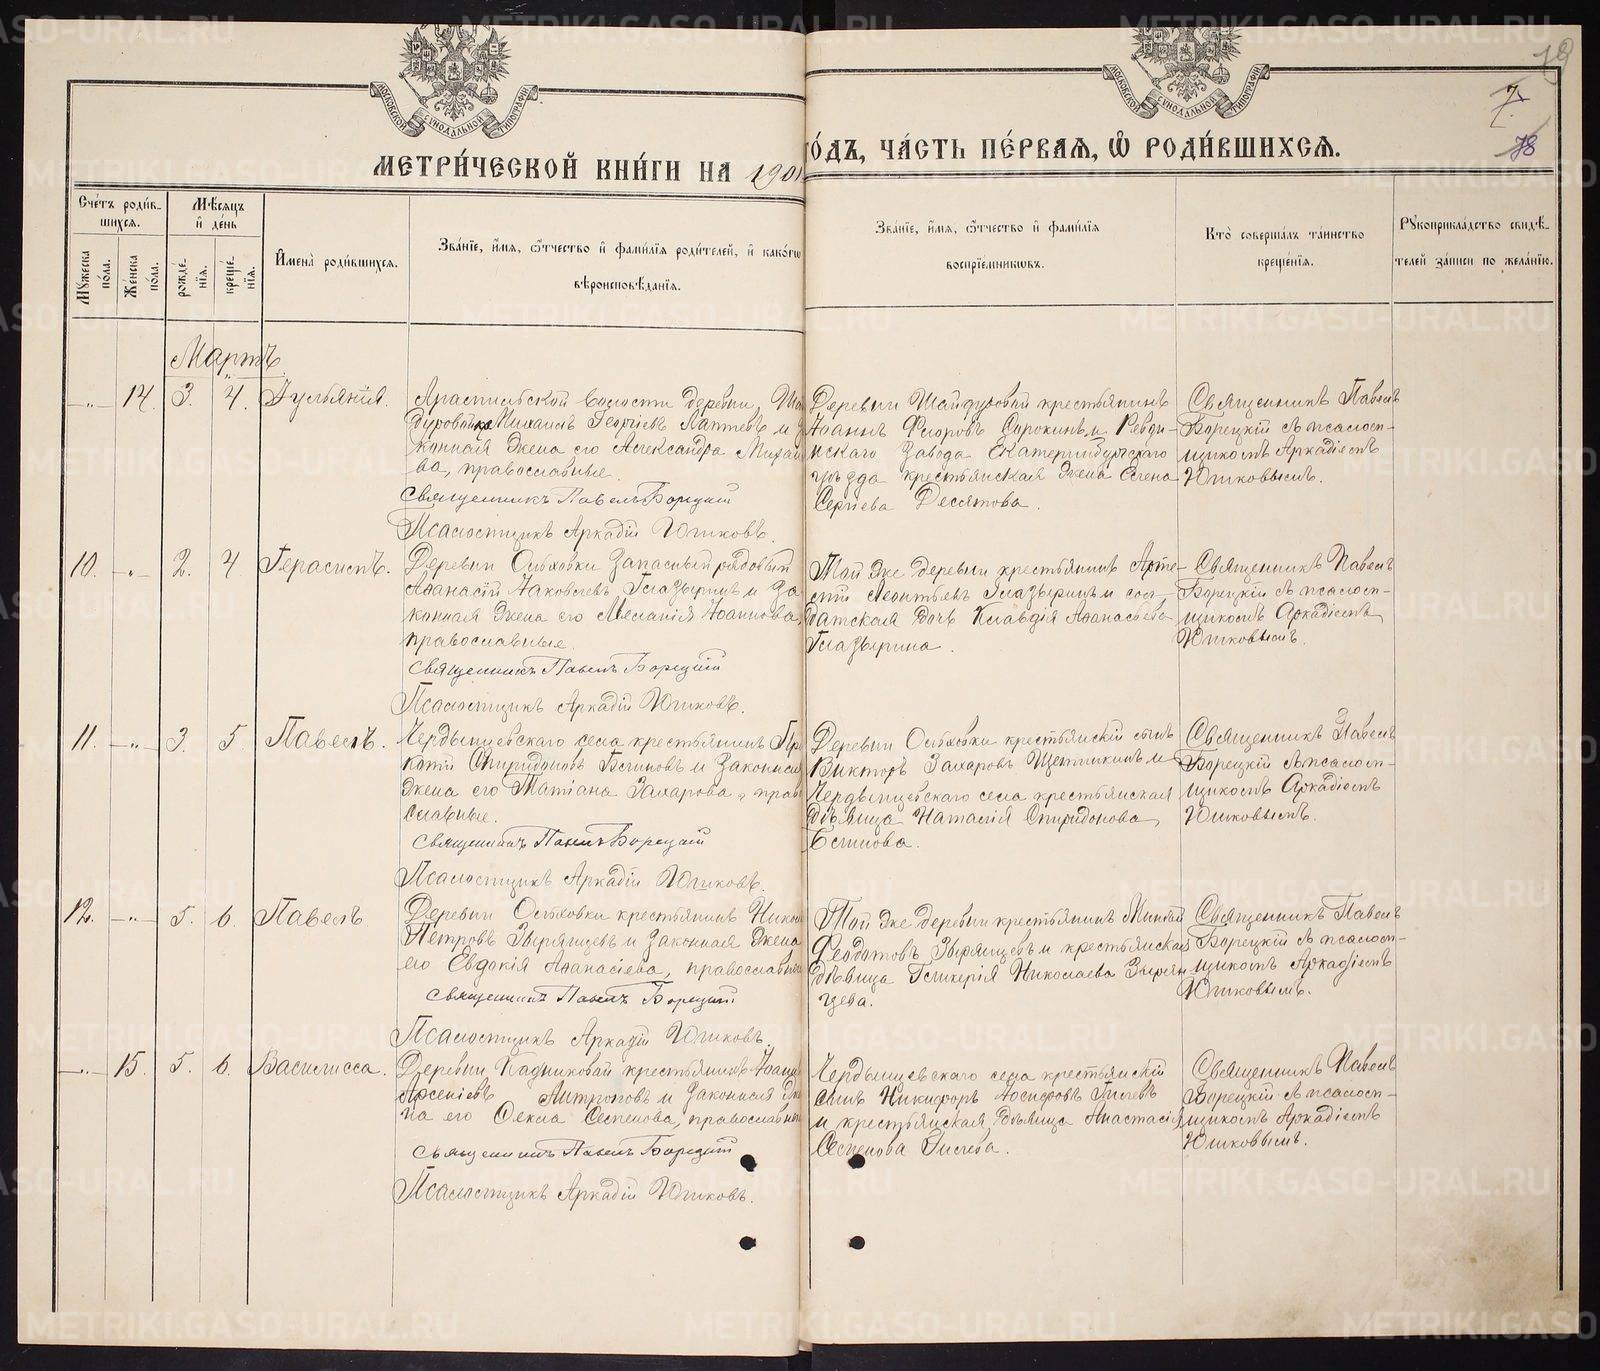 МОСКОВСКОЙ СѴНОДАЛЬНОЙ ТИПОГРАФІИ
МОСКОВСКОЙ СѴНОДАЛЬНОЙ ТИПОГРАФІИ
7.
78
МЕТРИ́ЧЕСКОЙ КНИ́ГИ НА 1901
ГО́ДЪ, ЧА́СТЬ ПЕ́РВАѦ, Ѽ РОДИ́ВШИХСѦ.
Сче́тъ роди́в-
шихсѧ.
Мꙋжеска по́ла.
Же́нска по́ла.
Мѣ́сѧцъ
и҆ де́нь
рожде́нїѧ.
креще́нїѧ.
И҆мена̀ роди́вшихсѧ.
Зва́нїе, и҆́мѧ, ѻ҆́тчество и҆ фами́лїѧ роди́телей, и҆ како́гѡ
вѣроисповѣ́данїѧ.
Зва́нїе, и҆́мѧ, ѻ҆́тчество и҆ фами́лїѧ
воспрїе́мникѡвъ.
Кто̀ соверша́лъ та́инство
креще́нїѧ.
Рꙋкоприкла́дство свидѣ́-
телей за́писи по жела́нїю.
Мартъ.
—„— 14. 3. 4. Iульянія.
Арамильской волости деревни Шай
дуровой кр. Михаилъ Георгіевъ Лаптевъ и за
конная жена его Александра Михай
ва, православные.
Священникъ Павелъ Борецкій
Псаломщикъ Аркадій Юшковъ.
Деревни Шайдуровой крестьянинъ
Іоаннъ Флоровъ Сорокинъ и Ревди-
нскаго завода Екатеринбургскаго
уѣзда крестьянская жена Елена
Сергіева Десятова.
Священникъ Павелъ
Борецкій съ псалом-
щикомъ Аркадіемъ
Юшковымъ.
10. —„— 2. 4. Герасимъ.
Деревни Ольховки запасный рядовый
Аѳанасій Іаковлевъ Глазыринъ и за
конная жена его Меланія Іоаннова,
православные.
Священникъ Павелъ Борецкій
Псаломщикъ Аркадій Юшковъ.
Той же деревни крестьянинъ Арте-
мій Леонтьевъ Глазыринъ и сол-
датская дочь Клавдія Аѳанасьева
Глазырина.
Священникъ Павелъ
Борецкій съ псалом-
щикомъ Аркадіемъ
Юшковымъ.
11. —„— 3. 5. Павелъ.
Чердынцевскаго села крестьянинъ Про
копій Спиридоновъ Беминовъ и законная
жена его Татіана Захарова, право
славные.
Священникъ Павелъ Борецкій
Псаломщикъ Аркадій Юшковъ.
Деревни Ольховки крестьянскій сынъ
Викторъ Захаровъ Щепкинъ и
Чердынцевскаго села крестьянская
дѣвица Наталія Спиридонова
Беминова.
Священникъ Павелъ
Борецкій съ псалом-
щикомъ Аркадіемъ
Юшковымъ.
12. —„— 5. 6. Павелъ
Деревни Ольховки крестьянинъ Никол
Петровъ Зырянцевъ и законная жена
его Евдокія Аѳанасіева, православные
Священникъ Павелъ Борецкій
Псаломщикъ Аркадій Юшковъ.
Той же деревни крестьянинъ
Ѳеодотовъ Зырянцевъ и крестьянская
дѣвица Гликерія Николаева Зырян
цева.
Священникъ Павелъ
Борецкій съ псалом-
щикомъ Аркадіемъ
Юшковымъ.
—„— 15. 5. 6. Василисса.
Деревни Кадниковой крестьянинъ Іоанн
Арсеніевъ Митроповъ и законная же
на его Ѳекла Семенова, православные
Священникъ Павелъ Борецкій
Псаломщикъ Аркадій Юшковъ.
Чердынцевскаго села крестьянскій
сынъ Никифоръ Іосифовъ Гилевъ
и крестьянская дѣвица Анастасія
Семенова Гилева.
Священникъ Павелъ
Борецкій съ псалом-
щикомъ Аркадіемъ
Юшковымъ.
METRIKI.GASO-URAL.RU